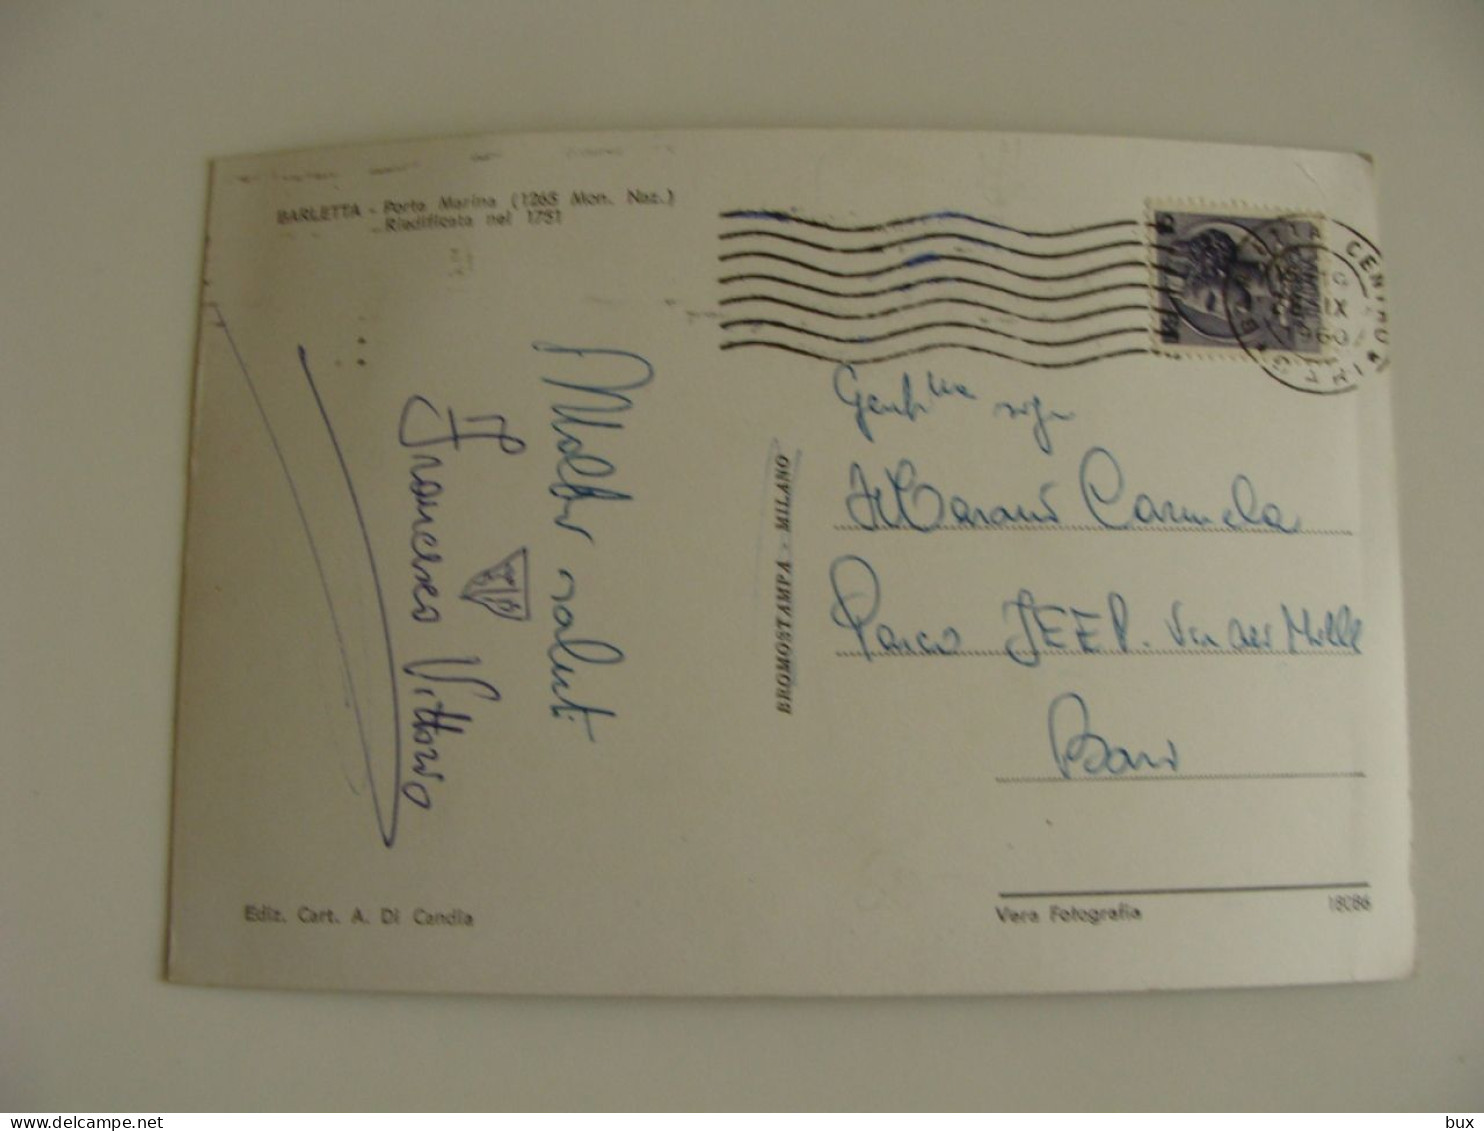 BARLETTA - Porta Marina (1268 Mon. Naz.)
Riedificata nel 1751
CENTRO
IX
1960
Molti saluti
Francesco Vittorio
BROMOSTAMPA - MILANO
Gent.ma sig.
Carmela
Parco JEEP. Via dei Mille
Bari
Ediz. Cart. A. Di Candia
Vera Fotografia
18086
www.delcampe.net
bux